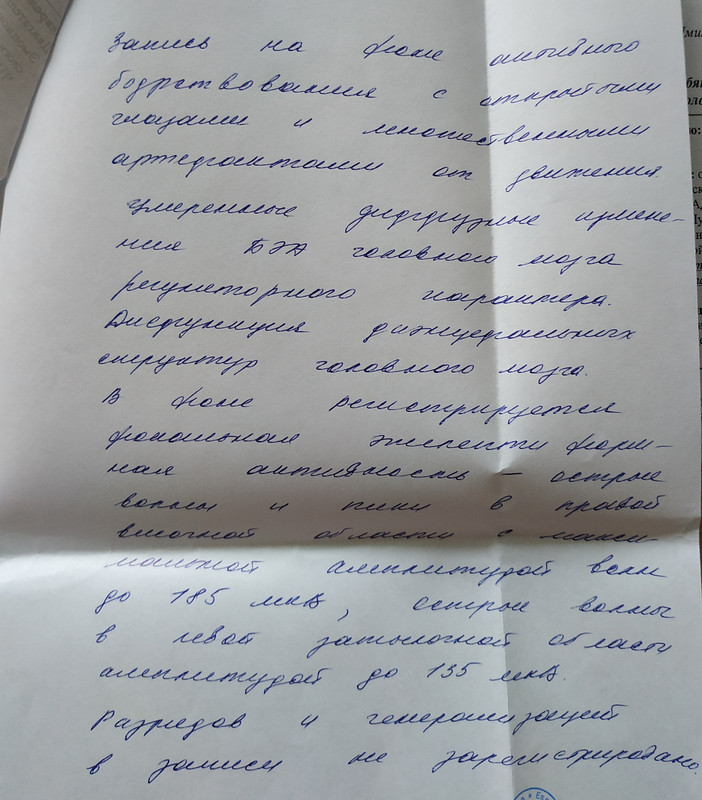 Запись на фоне активного
бодрствования с открытыми
глазами и множественными
артефактами от движения.
Умеренные диффузные измене-
ния БЭА головного мозга
регуляторного характера.
Дисфункция диэнцефальных
структур головного мозга.
В фоне регистрируется
фокальная эпилептиформ-
ная активность – острые
волны и пики в правой
височной области с макси-
мальной амплитудой волн
до 185 мкВ, острые волны
в левой затылочной области
амплитудой до 135 мкВ.
Разрядов и генерализаций
в записи не зарегистрировано.